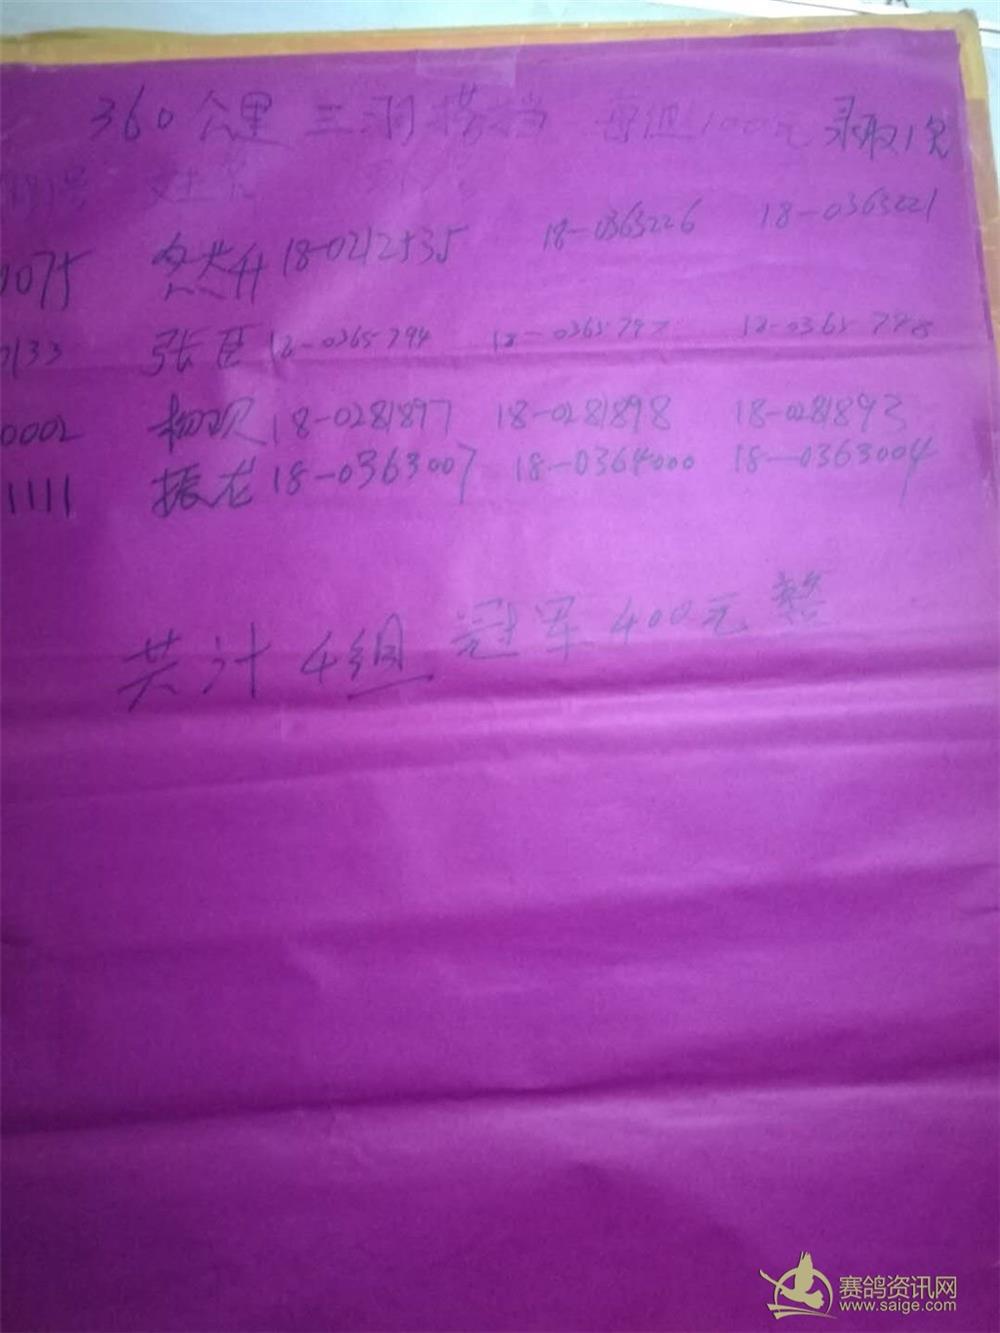 360公里 三羽搭档 每组100元 录取1名
姓名
075 18-0212535 18-0363226 18-0363221
133 张臣 18-0365794 18-0365797 18-0365798
0002 杨现 18-0281897 18-0281898 18-0281893
1111 振龙 18-0363007 18-0364000 18-0363004
共计4组 冠军400元整
赛鸽资讯网
www.saige.com